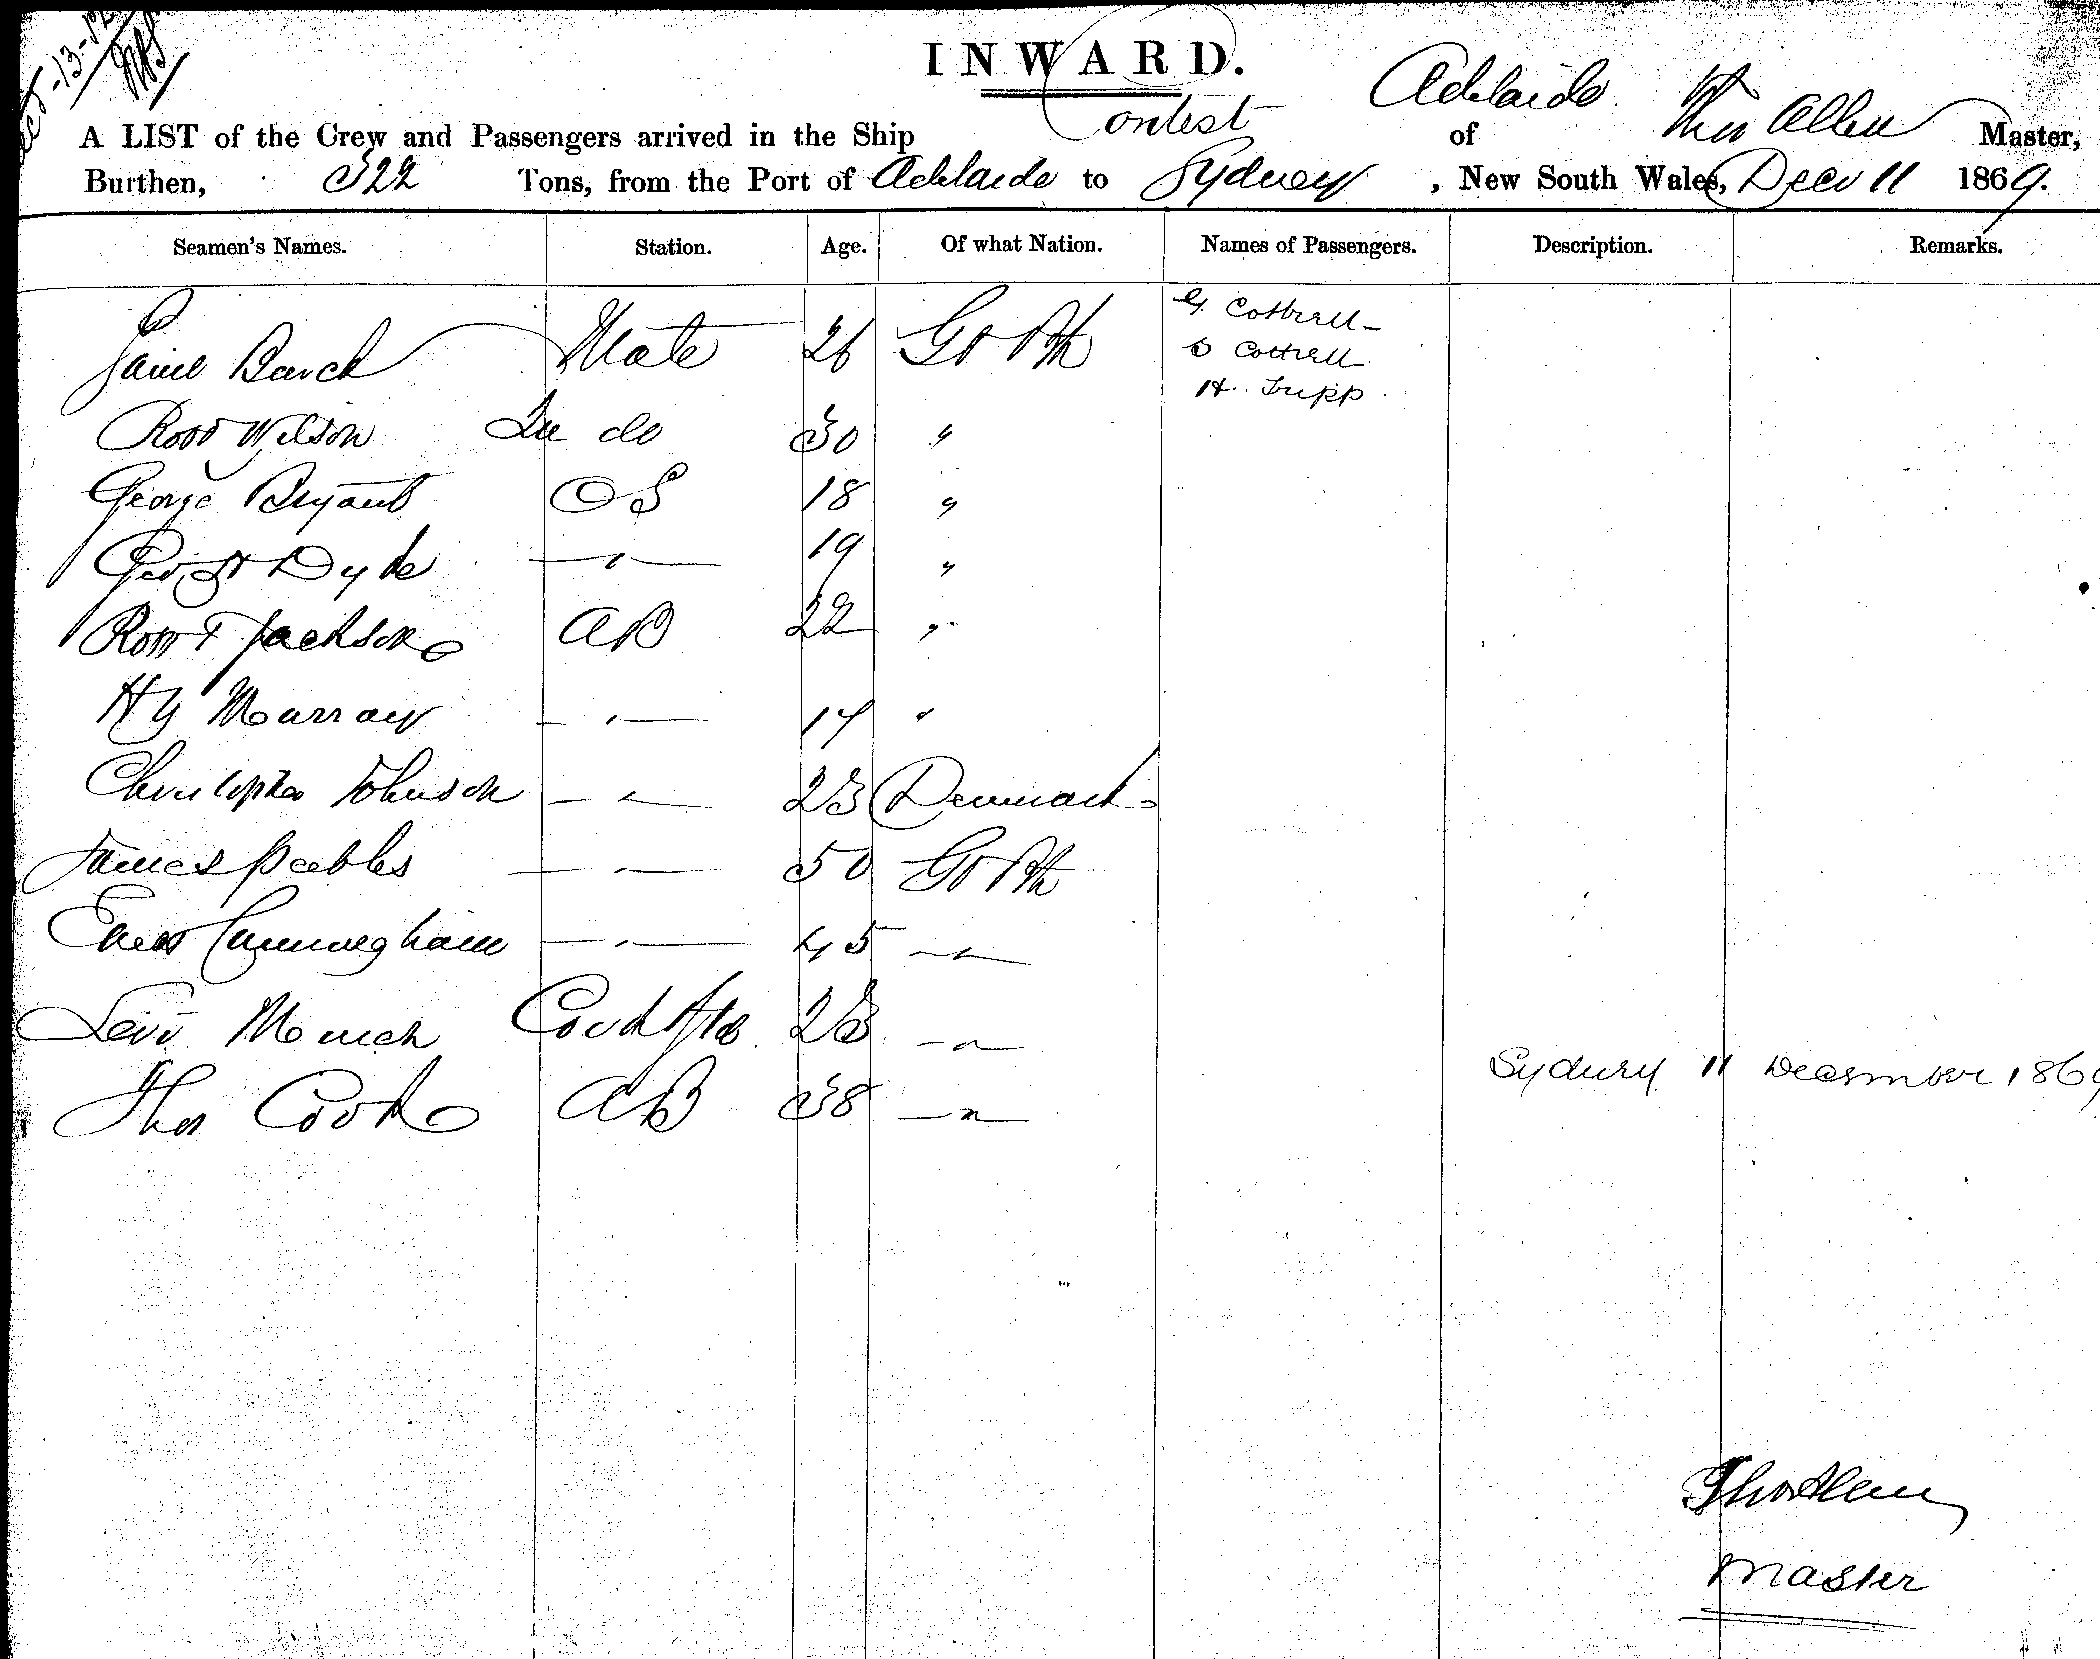 INWARD.
A LIST of the Crew and Passengers arrived in the Ship Contest of Adelaide Thos Allen Master,
Burthen, 322 Tons, from the Port of Adelaide to Sydney, New South Wales, Decr 11 1869.
Seamen's Names. Station. Age. Of what Nation. Names of Passengers. Description. Remarks.
Mate 26 Gt Bth G. Cottrell
S Cottrell
H. Tripp
Robt Wilson 2n do 30 "
George Bryant OS 18 "
Geo Dyke " 19 "
Robt Jackson AB 22 "
Hy Murray " 17 "
Christopher Johnson " 23 Denmark
James Peebles " 50 Gt Bth
Cunningham " 45 "
Levi Cook 23 "
Thos Cook AB 38 "
Sydney 11 December 1869
Thos Allen
Master